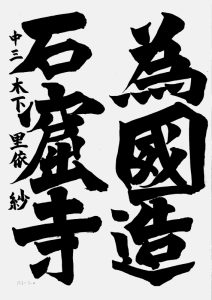 為國造
石窟寺
中三 木下 里依紗